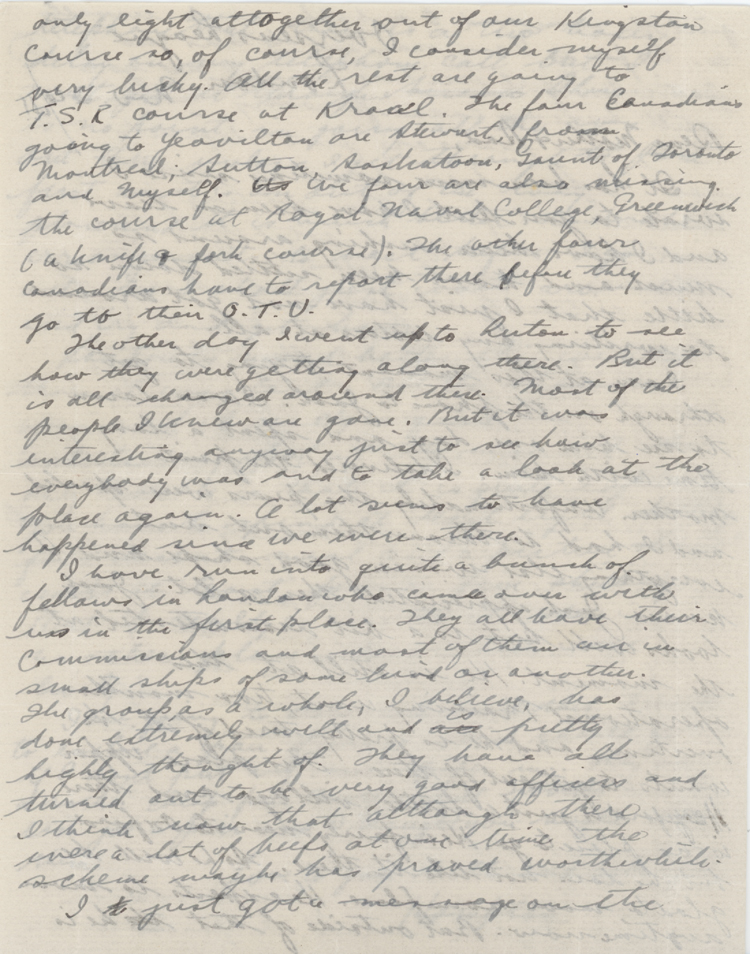 only eight altogether out of our Kingston
course so, of course, I consider myself
very lucky. All the rest are going to
T.S.R course at Kraal. The four Canadians
going to Yeovilton are Stewart, from
Montreal; Sutton, Saskatoon, Gaunt of Toronto
and myself. We four are also missing
the course at Royal Naval College, Greenwich
(a knife & fork course). The other four
Canadians have to report there before they
go to their O.T.U.
The other day I went up to Luton to see
how they were getting along there. But it
is all changed around there. Most of the
people I knew are gone. But it was
interesting anyway just to see how
everybody was and to take a look at the
place again. A lot seems to have
happened since we were there.
I have run into quite a bunch of
fellows in London who came over with
us in the first place. They all have their
Commissions and most of them are in
small ships of some kind or another.
The group, as a whole, I believe, has
done extremely well and is pretty
highly thought of. They have all
turned out to be very good officers and
I think now that although there
were a lot of beefs at one time the
scheme maybe has proved worthwhile.
I just got a message on the